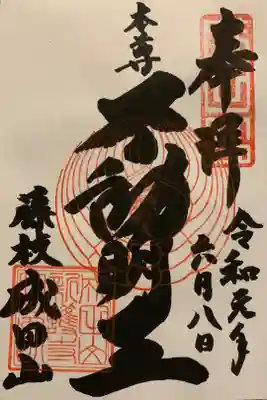 奉拝
令和元年
六月八日
本尊
不動明王
藤枝
成田山